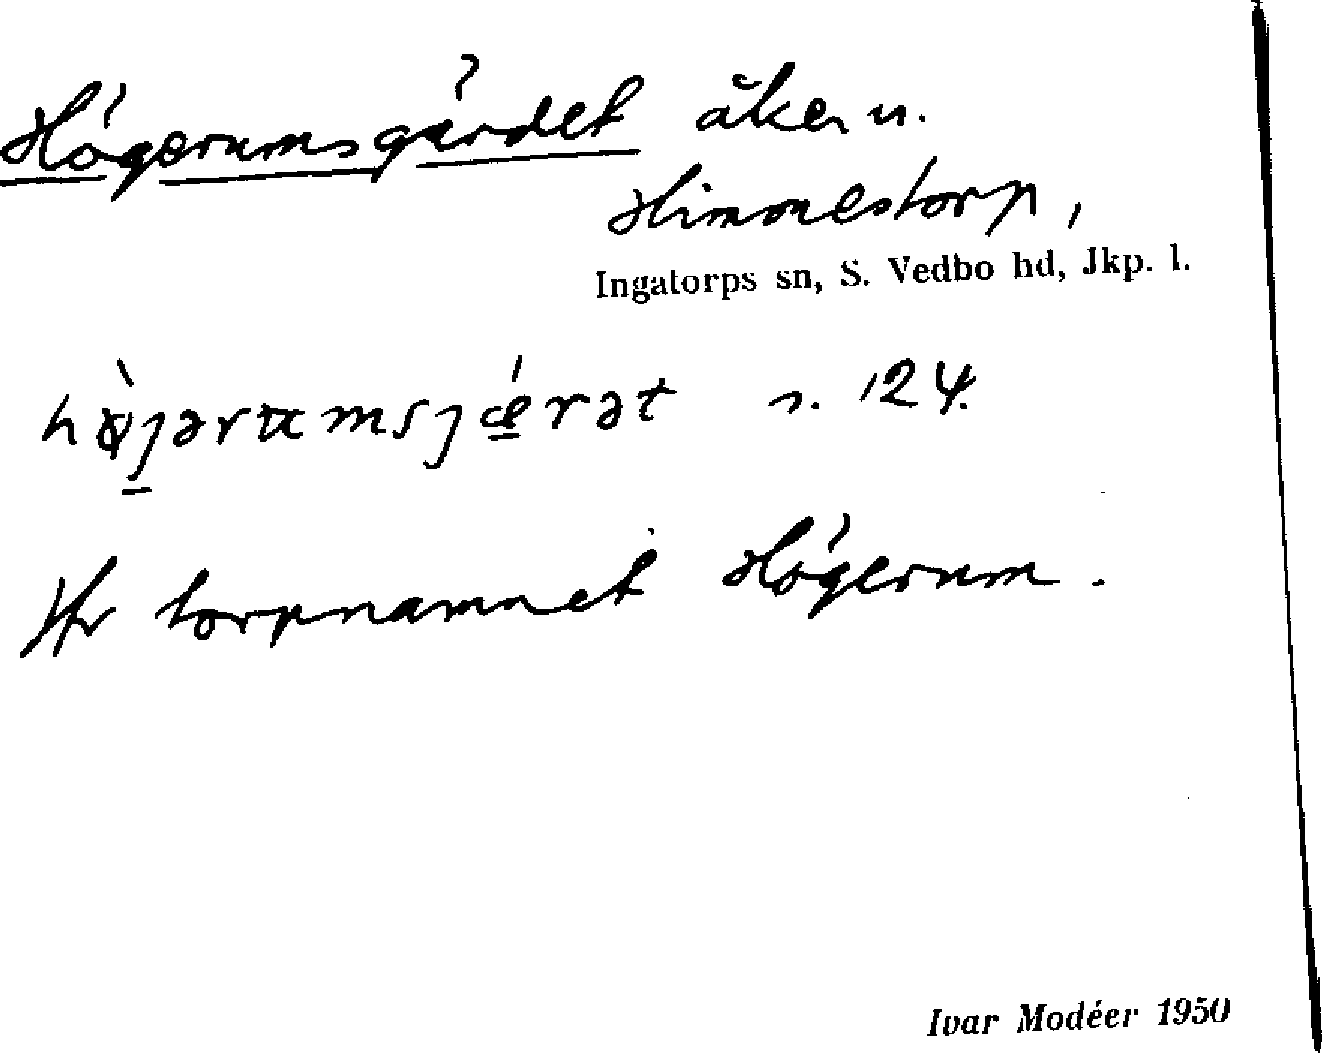 Högerumsgärdet åker u.
Himmestorp,
Ingatorps sn, S. Vedbo hd, Jkp. l.
s. 124.
torpnamnet Högerum.
Ivar Modéer 1950